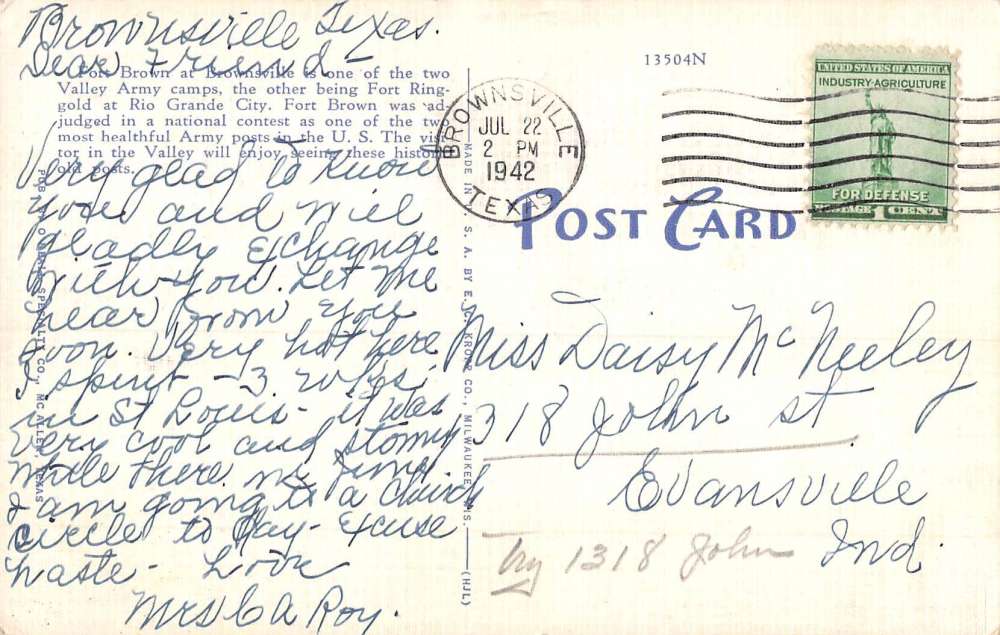 Brownsville Texas.
Dear Friend-
Fort Brown at Brownsville is one of the two
Valley Army camps, the other being Fort Ring-
gold at Rio Grande City. Fort Brown was ad-
judged in a national contest as one of the two
most healthful Army posts in the U. S. The visi-
tor in the Valley will enjoy seeing these historic
old posts.
Very glad to know
you and will
gladly Exchange
with you. Let me
hear from you
soon. Very hot here
I spent - 3 wks.
in St Louis - it was
very cool and stomy
while there in June
I am going to a church
circle to day - Excuse
haste - Love
Mrs C A Roy.
13504N
BROWNSVILLE
JUL 22
2 PM
1942
TEXAS
UNITED STATES OF AMERICA
INDUSTRY-AGRICULTURE
FOR DEFENSE
POSTAGE 1 CENT
POST CARD
MADE IN U. S. A. BY E. C. KROPP CO., MILWAUKEE, WIS.
(HJL)
SPECIALTY CO., MC ALLEN, TEXAS
Miss Daisy McNeeley
318 John st
Evansville
Ind.
Try 1318 John